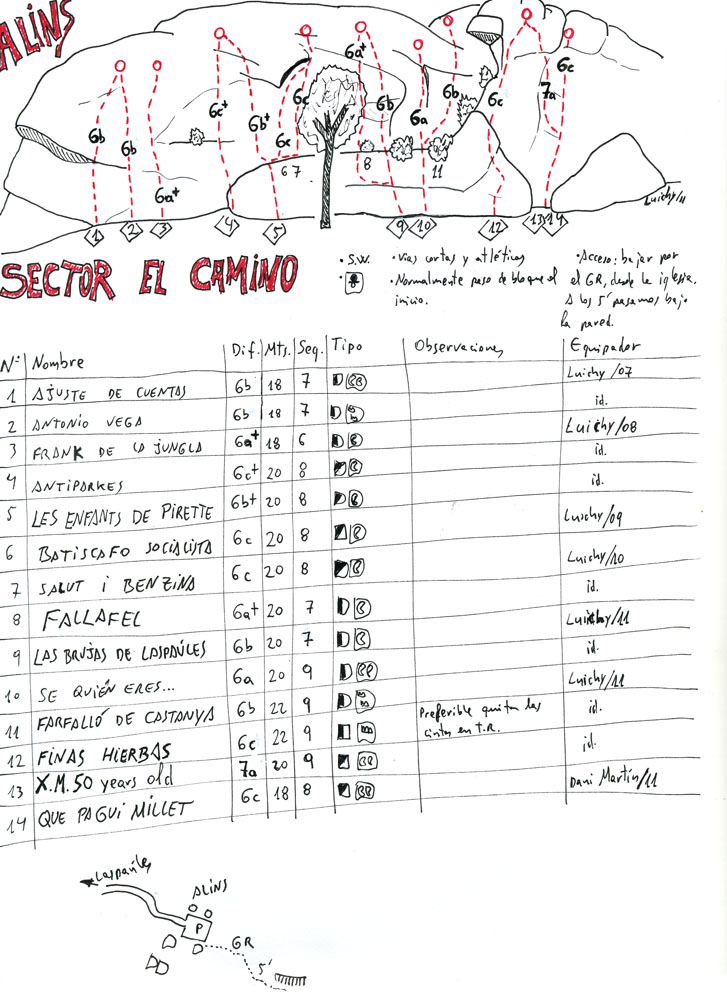 ALINS
6b
6b
6a+
6c+
6b+
6c
6c
6a+
6b
6a
6b
6c
7a
6c
6 7
8
11
1
2
3
4
5
9
10
12
13
14
Luichy/11
SECTOR EL CAMINO
• S.W.
• Vias cortas y atléticas
• Normalmente paso de bloque al
inicio.
• Acceso: bajar por
el GR, desde la iglesia.
A los 5' pasamos bajo
la pared.
Nº Nombre Dif. Mts. Seg. Tipo Observaciones Equipador
1 AJUSTE DE CUENTAS 6b 18 7 Luichy/07
2 ANTONIO VEGA 6b 18 7 id.
3 FRANK DE LA JUNGLA 6a+ 18 6 Luichy/08
4 ANTIPARKES 6c+ 20 8 id.
5 LES ENFANTS DE PIRETTE 6b+ 20 8 id.
6 BATISCAFO SOCIALISTA 6c 20 8 Luichy/09
7 SALUT I BENZINA 6c 20 8 Luichy/10
8 FALLAFEL 6a+ 20 7 id.
9 LAS BRUJAS DE LASPAÚLES 6b 20 7 Luichy/11
10 SE QUIÉN ERES... 6a 20 9 id.
11 FARFALLÓ DE CASTANYA 6b 22 9 Preferible quitar las cintas en T.R. Luichy/11
12 FINAS HIERBAS 6c 22 9 id.
13 X.M. 50 years old 7a 20 9 id.
14 QUE PAGUI MILLET 6c 18 8 Dani Martín/11
Laspaúles
ALINS
P
GR
5'